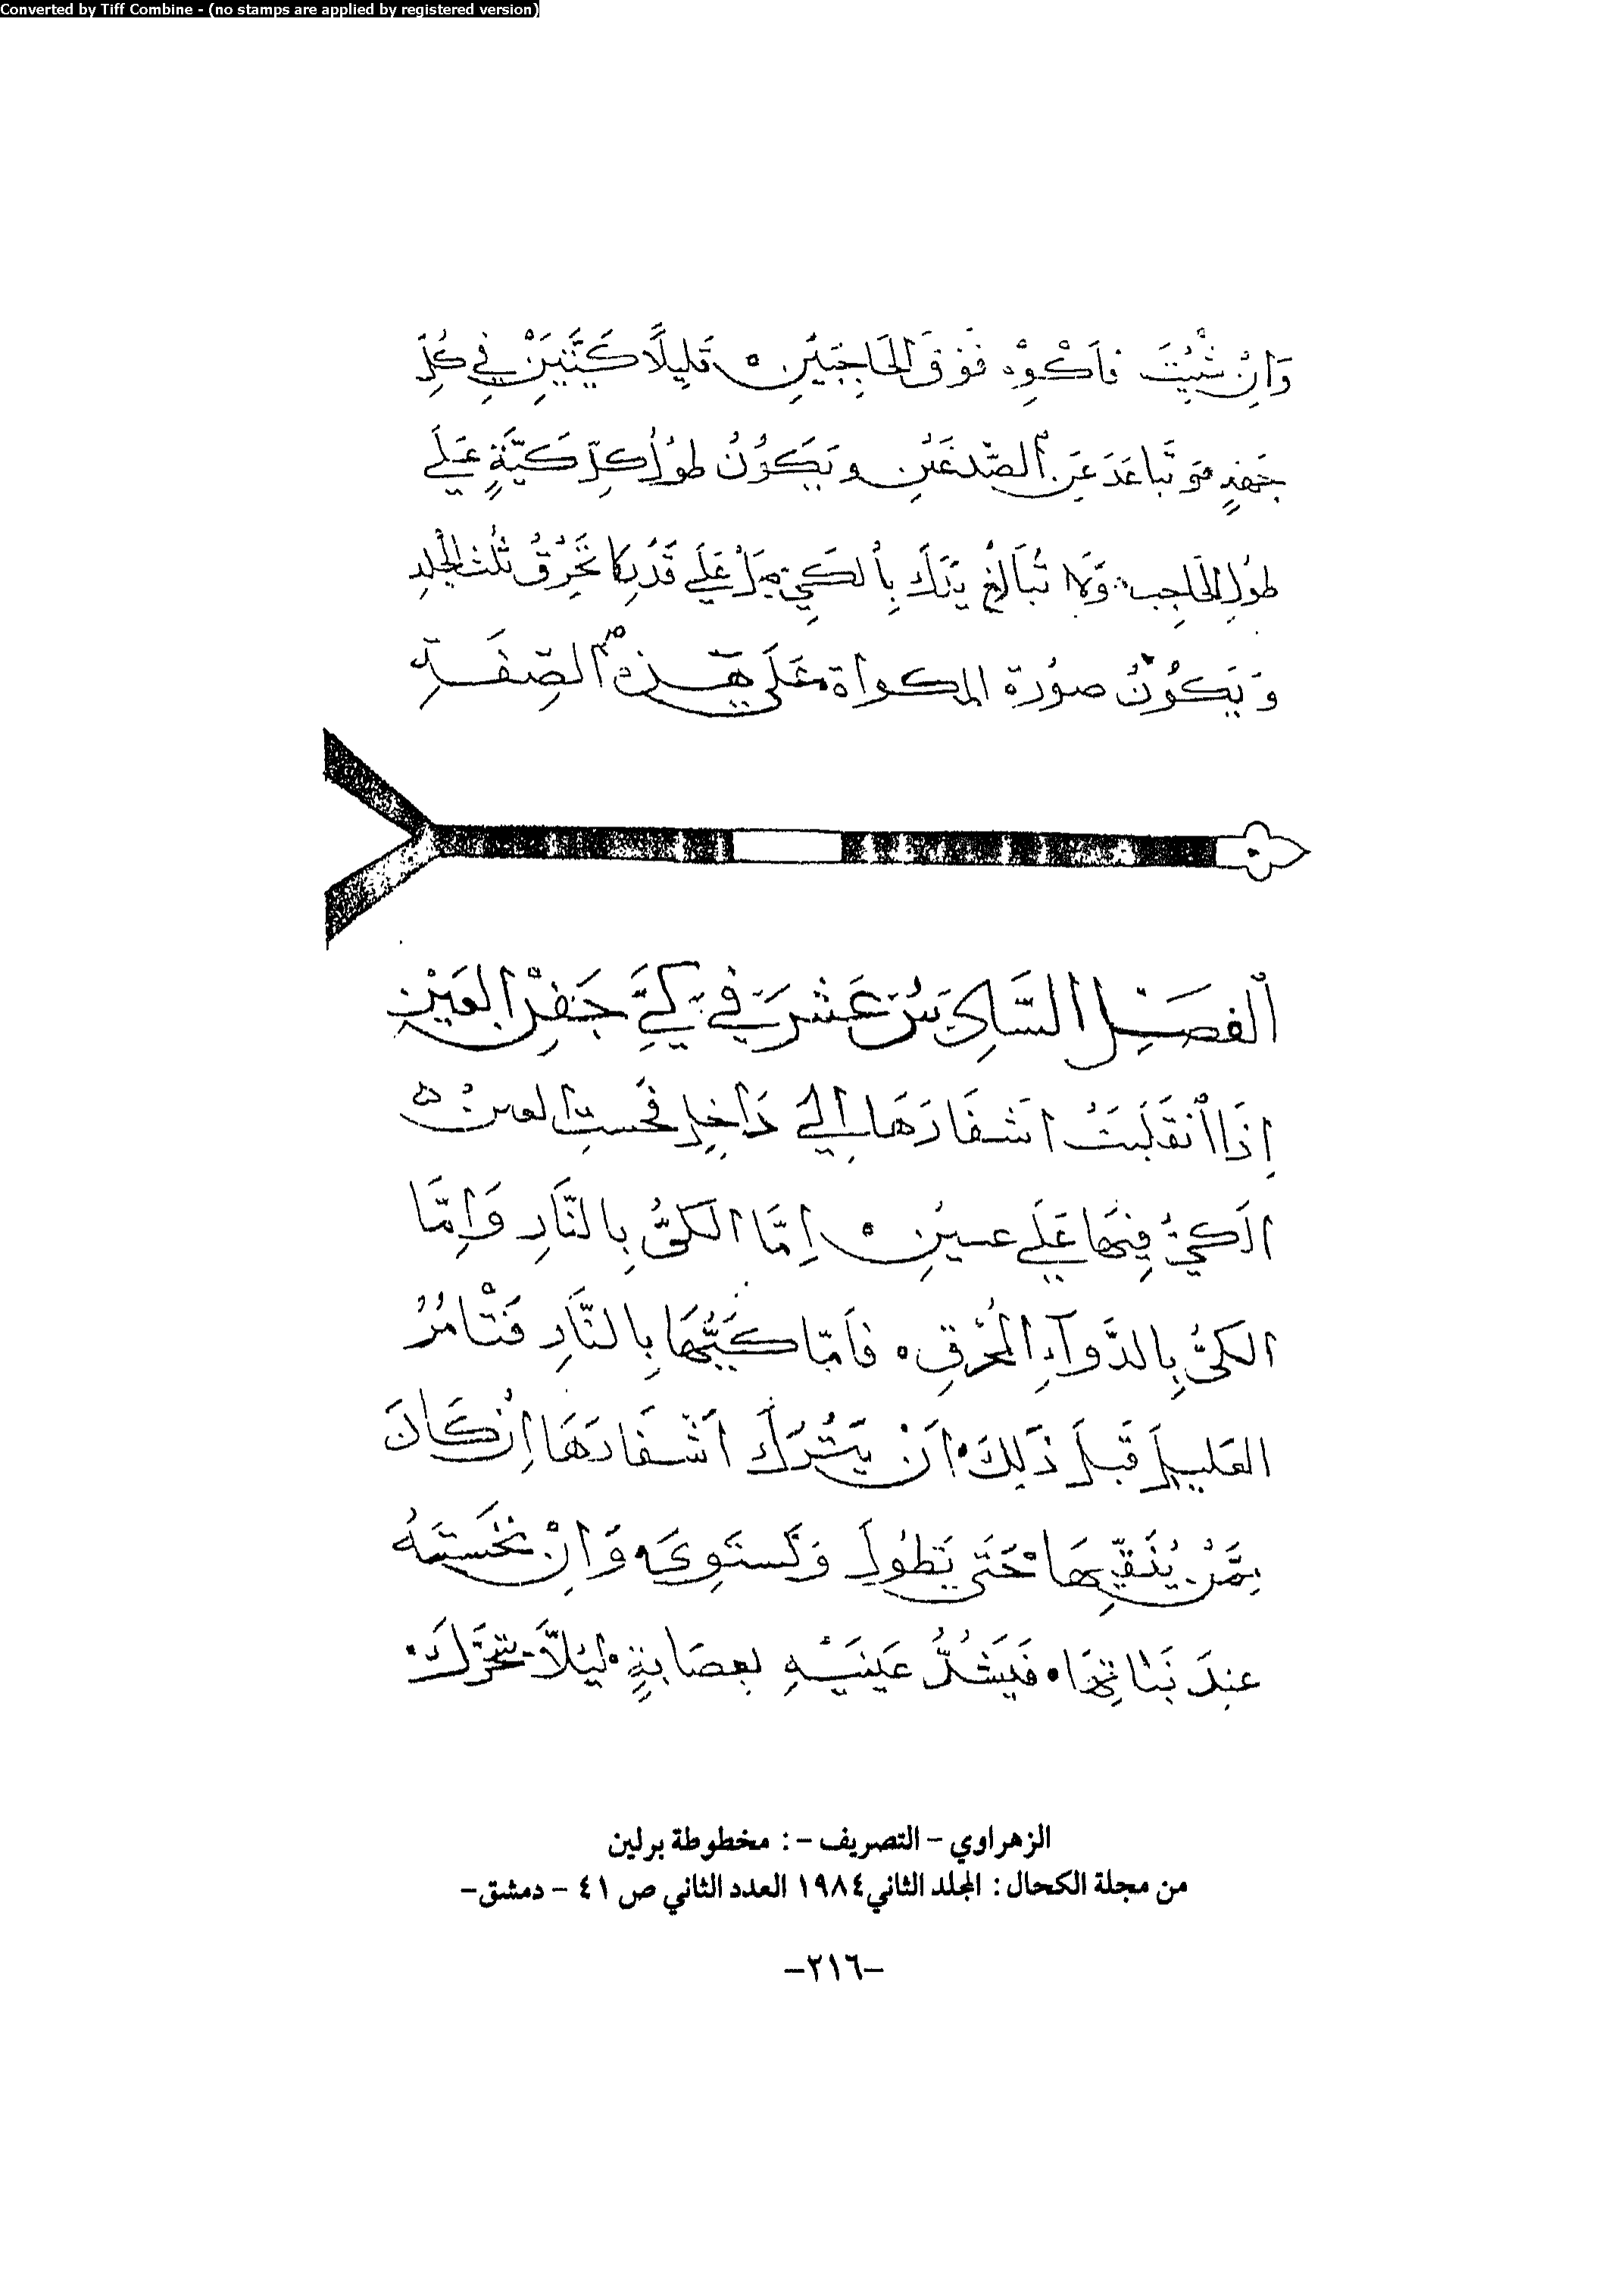 Converted by Tiff Combine - (no stamps are applied by registered version)
وَاِنْ شِئْتَ فاَكْوِهْ فَوْقَ الحَاجِبَيْنِ قَلِيلًا كَيَّتَيْنِ فِي كُلِّ
جِهَةٍ وَتَبَاعَدَ عَنِ الصُّدغَيْنِ وَيَكُوْنُ طُوْلُ كلِّ كَيَّةٍ عَلَي
طُولِ الحَاجِبِ وَلَا تُبَالِغْ يَدَكَ بِالكَيِّ بَلْ عَلَي قَدْرِ مَا تُحْرِقُ ثُلْثَ الْجِلدِ
وَيَكُوْنُ صوُرة المكواة عَلَي هَذِهِ الصِّفَةِ
اَلفَصَلُ السَّادِسُ عَشَرَ فِي كَيِّ جَفْنِ العَيْنِ
اِذَا اْنقَلَبَتْ اَشفَارَهَا اِلَي دَاخِلٍ فَنخستِ العين
الَكيُّ فِيهَا عَلَي ضربينِ اِمَّا الكَيُّ بِالنَّارِ وَاِمَّا
الكَيُّ بِالدَّوآءِ المُحْرِقِ فاَمَّا كَيُّهَا بِالنَّارِ فَتْامُرُ
العَلِيلَ قَبلَ ذَلِكَ اَنْ يَتْرُكَ اَشفَارَهَا اِنْ كَانَ
مِمَّنْ يُنَقِّيهَا حَتَي تَطُولَ وَتَستَوِي وَاِنْ نخَستهُ
عِندَ نَبَاتِهَا فَيَشُدُّ عَينَيْهِ بِعِصَابةٍ لِئلاَّ تتحَرَّك
الزهراوي – التصريف –: مخطوطة برلين
من مجلة الكحال: المجلد الثاني ١٩٨٤ العدد الثاني ص ٤١ – دمشق–
–٢١٦–